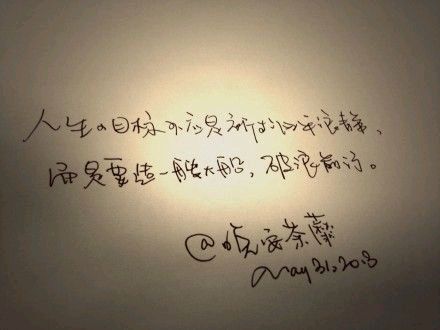 人生的目标不应是祈求风平浪静，
而是要造一艘大船，破浪前行。
@晚安荼蘼
May 31, 2013